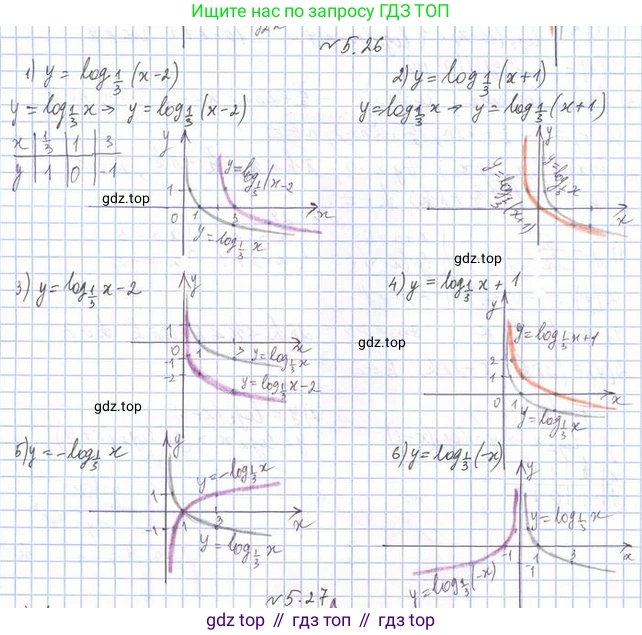 Ищите нас по запросу ГДЗ ТОП
№5.26
1) y = log_{1/3}(x-2)
2) y = log_{1/3}(x+1)
y = log_{1/3} x → y = log_{1/3}(x-2)
y = log_{1/3} x → y = log_{1/3}(x+1)
x | 1/3 | 1 | 3
y | 1 | 0 | -1
y
1
0 1 3 x
y = log_{1/3}(x-2
y = log_{1/3} x
gdz.top
y
y = log_{1/3}(x+1)
y = log_{1/3} x
x
gdz.top
3) y = log_{1/3} x - 2
4) y = log_{1/3} x + 1
y
1
0 1 3 x
-1
-2
y = log_{1/3} x
y = log_{1/3} x - 2
gdz.top
y
2
1
1 x
y = log_{1/3} x + 1
y = log_{1/3} x
gdz.top
5) y = -log_{1/3} x
6) y = log_{1/3}(-x)
y
1
-1
1 3 x
y = -log_{1/3} x
y = log_{1/3} x
gdz.top
y
-1 1 3 x
-1
y = log_{1/3} x
y = log_{1/3}(-x)
gdz.top
№5.27
gdz.top // gdz.top // gdz.top